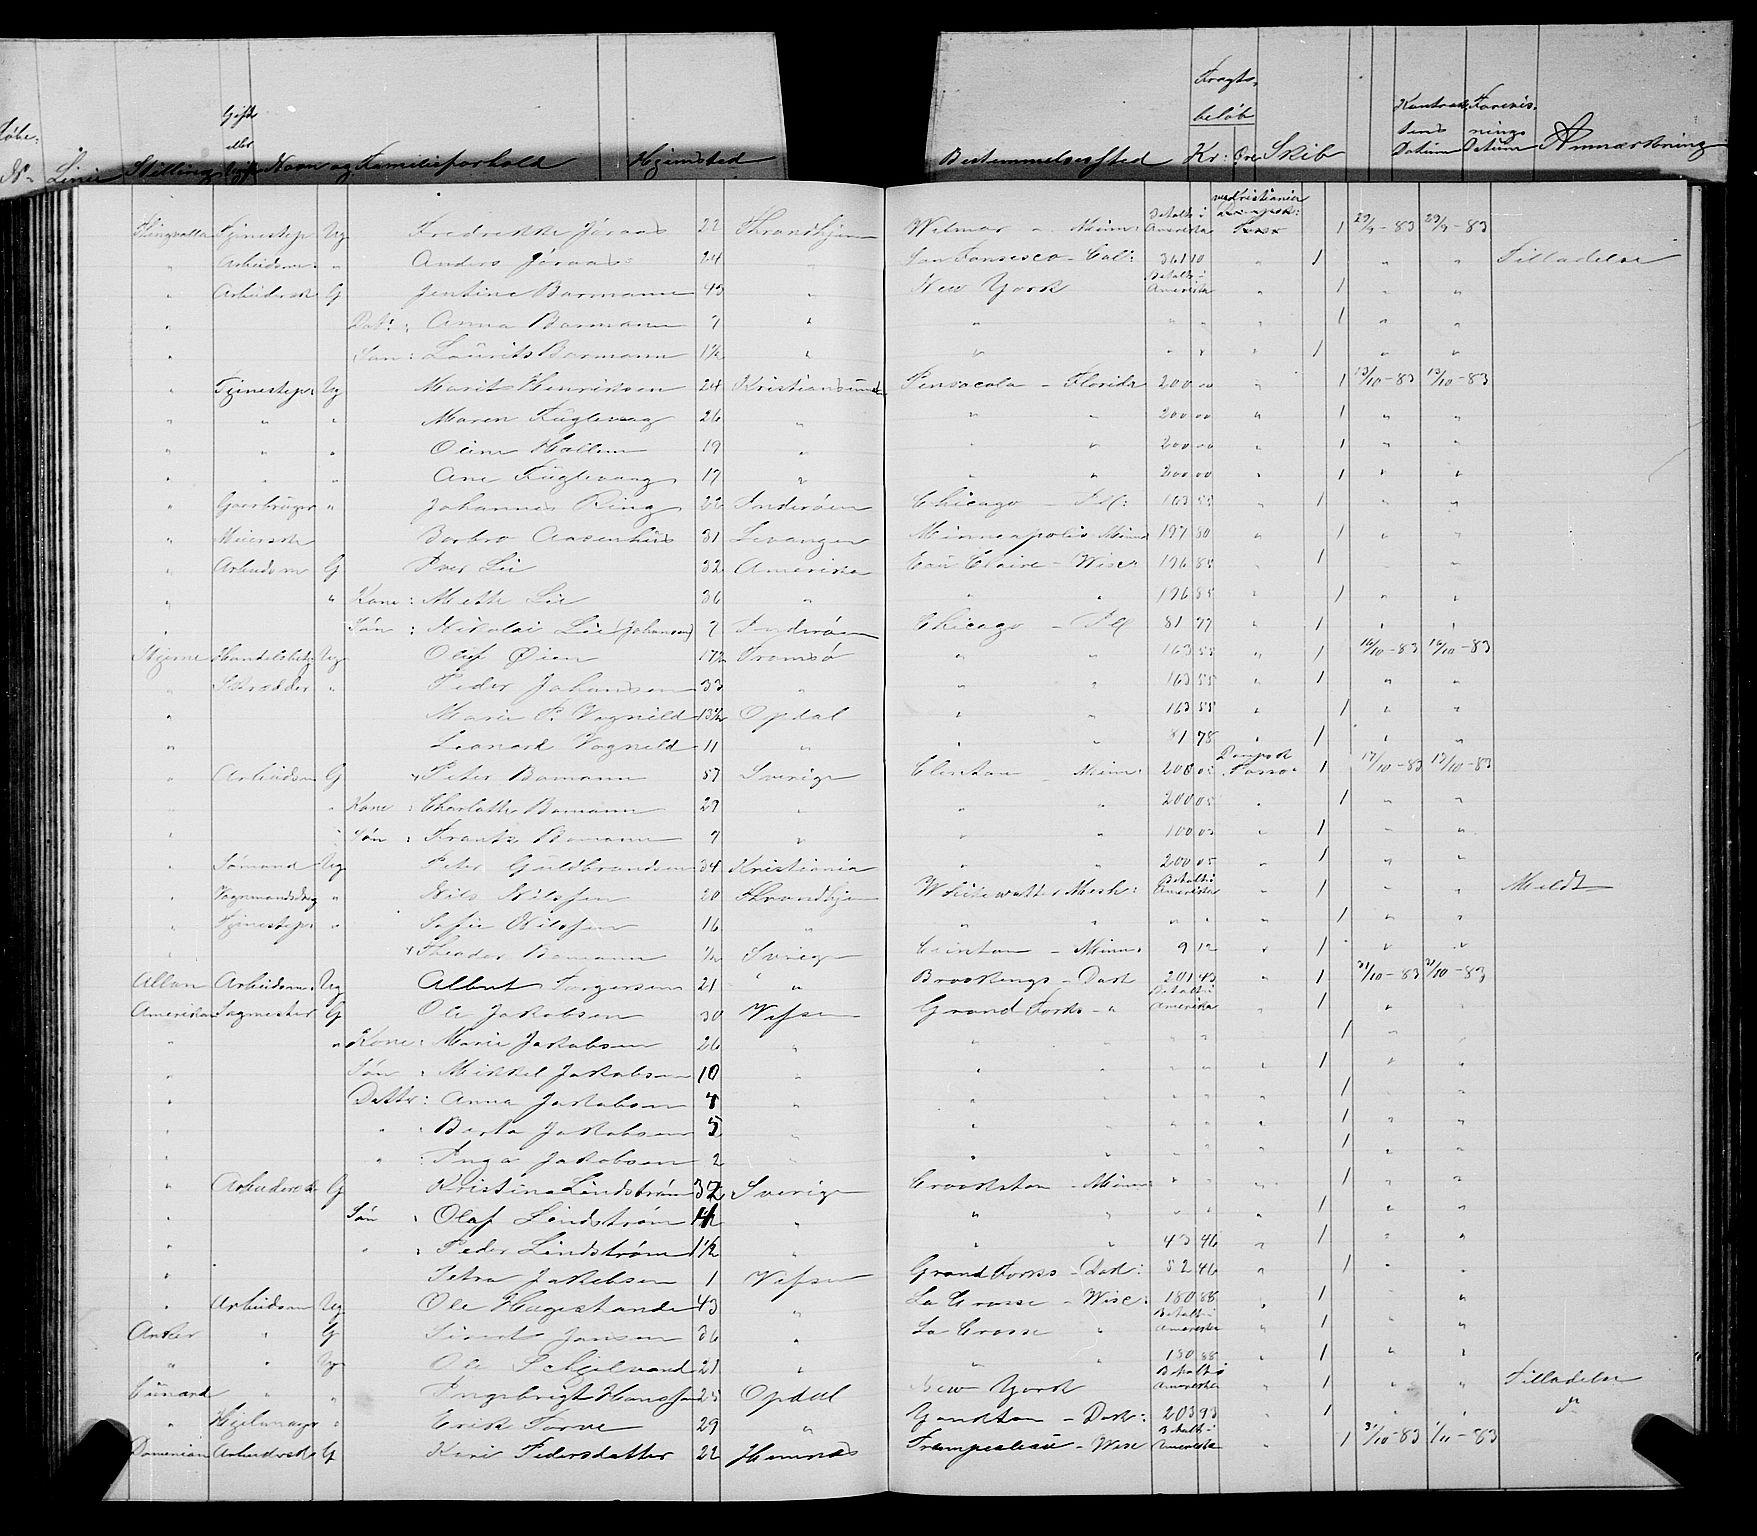 Løbe- N° Linie Stilling Gift eller Ugift Navn og Familieforhold Hjemsted Bestemmelsessted Fragtbeløb Kr: Øre Skib Kontraktens Datum Forevisnings Datum Anmærkning
Thingvalla Tjenestep. Ug Fredrikke Jøraas 22 Throndhjem Wilmar " Minn: Betalt i Amerika med Kristiania 1 29/9-83 29/9-83
" Arbeidsm: " Anders Jøraas 24 " San Fansesco - Cal: 361 10 " 1 " " Tilladelse
" Arbeidersk G Jentine Barmann 45 " New York Betalt i Amerika " 1 " "
" Datt: Anna Barmann 7 " " " " " 1 " "
" Søn: Laurits Barmann 1½ " " " " " 1 " "
" Tjenestep: Ug Marit Henriksen 24 Kristiansund Pensacola - Florida 200 00 " 1 13/10-83 13/10-83
" " " Maren Fuglevaag 26 " " " 200 00 " 1 " "
" " " Oline Hallem 19 " " " 200 00 " 1 " "
" " " Ane Fuglevaag 17 " " " 200 00 " 1 " "
" Gaarbruger " Johannes Ring 22 Inderøen Chicago - Ill: 163 55 " 1 " "
" Meiersk Barbro Aasenhus 31 Levanger Minneapolis Minn 197 80 " 1 " "
" Arbeidsm G Iver Lie 32 Amerika Eau Claire - Wisc 176 85 " 1 " "
" " Kone: Mette Lie 36 " " " 176 85 " 1 " "
" Søn: Nikolai Lie (Johansen) 7 Inderøen Chicago - Ill 81 77 " 1 " "
Stjerne Handelsbetj: Ug Olaf Øien 17½ Tromsø " " 163 55 " 1 16/10-83 16/10-83
" Skrædder " Peder Johansen 33 " " " 163 55 " 1 " "
" Marie P. Vognild 13½ Opdal " " 163 55 " 1 " "
" Leonard Vognild 11 " " " 81 78 " 1 " "
" Arbeidsm G Peter Bomann 37 Sverige Clinton - Minn: 200 05 Dampsk Tasso 1 17/10-83 17/10-83
" " Kone: Charlotte Bomann 29 " " " 200 05 " 1 " "
" " Søn: Frantz Bomann 7 " " " 100 03 " 1 " "
" Sømand Ug Peter Guldbrandsen 34 Kristiania " " 200 05 " 1 " "
" " Nils Nilssen 20 Throndhjem Whitewatter Mich: Betalt i Amerika " 1 " " Meldt
" Tjenestep: " Sofie Nilssen 16 " " " " " " 1 " "
" Theodor Bomann ½ Sverige Clinton - Minn: 9 12 " 1 " "
Allan Arbeidsm: Ug Albert Torgersen 21 " Brookings - Dak 201 43 " 1 31/10-83 31/10-83
Amerikan Sagmester G Ole Jakobsen 30 Vefsen Grand Forks - " Betalt i Amerika " 1 " "
" " Kone: Marie Jakobsen 26 " " " " " 1 " "
" Søn: Mikkel Jakobsen 10 " " " " 1 " "
" Datter: Anna Jakobsen " " " " 1 " "
" " : Berta Jakobsen 5 " " " " 1 " "
" " : Inga Jakobsen 2 " " " " 1 " "
" Arbeidersk G Kristine Lindstrøm 32 Sverige Crookston - Minn " " " 1 " "
" Søn: Olaf Lindstrøm " " " " " " 1 " "
" " : Peder Lindstrøm 1½ " " " 43 46 " 1 " "
" Petra Jakobsen 1 Vefsen Grand Forks - Dak: 52 46 " 1 " "
" Arbeidsm Ug Ole Hagestande 43 " La Crosse - Wisc: 180 88 " 1 "
Anker " G Sivert Jansen 36 " La Crosse " Betalt i Amerika " 1 " "
" " Ug Ole Skjelvand 21 " " " 180 88 " 1 " "
Cunard " " Ingebrigt Hanssen 25 Opdal New York Betalt i Amerika " 1 " " Tilladelse
" " Erik Torve 29 " Yankton - Dak: 203 93 " 1 " " d°
Domenian Arbeidersk G Kari Pedersdatter 22 Hemnæs Trempealeau - Wisc Betalt i Amerika " 1 31/10-83 1/11-83